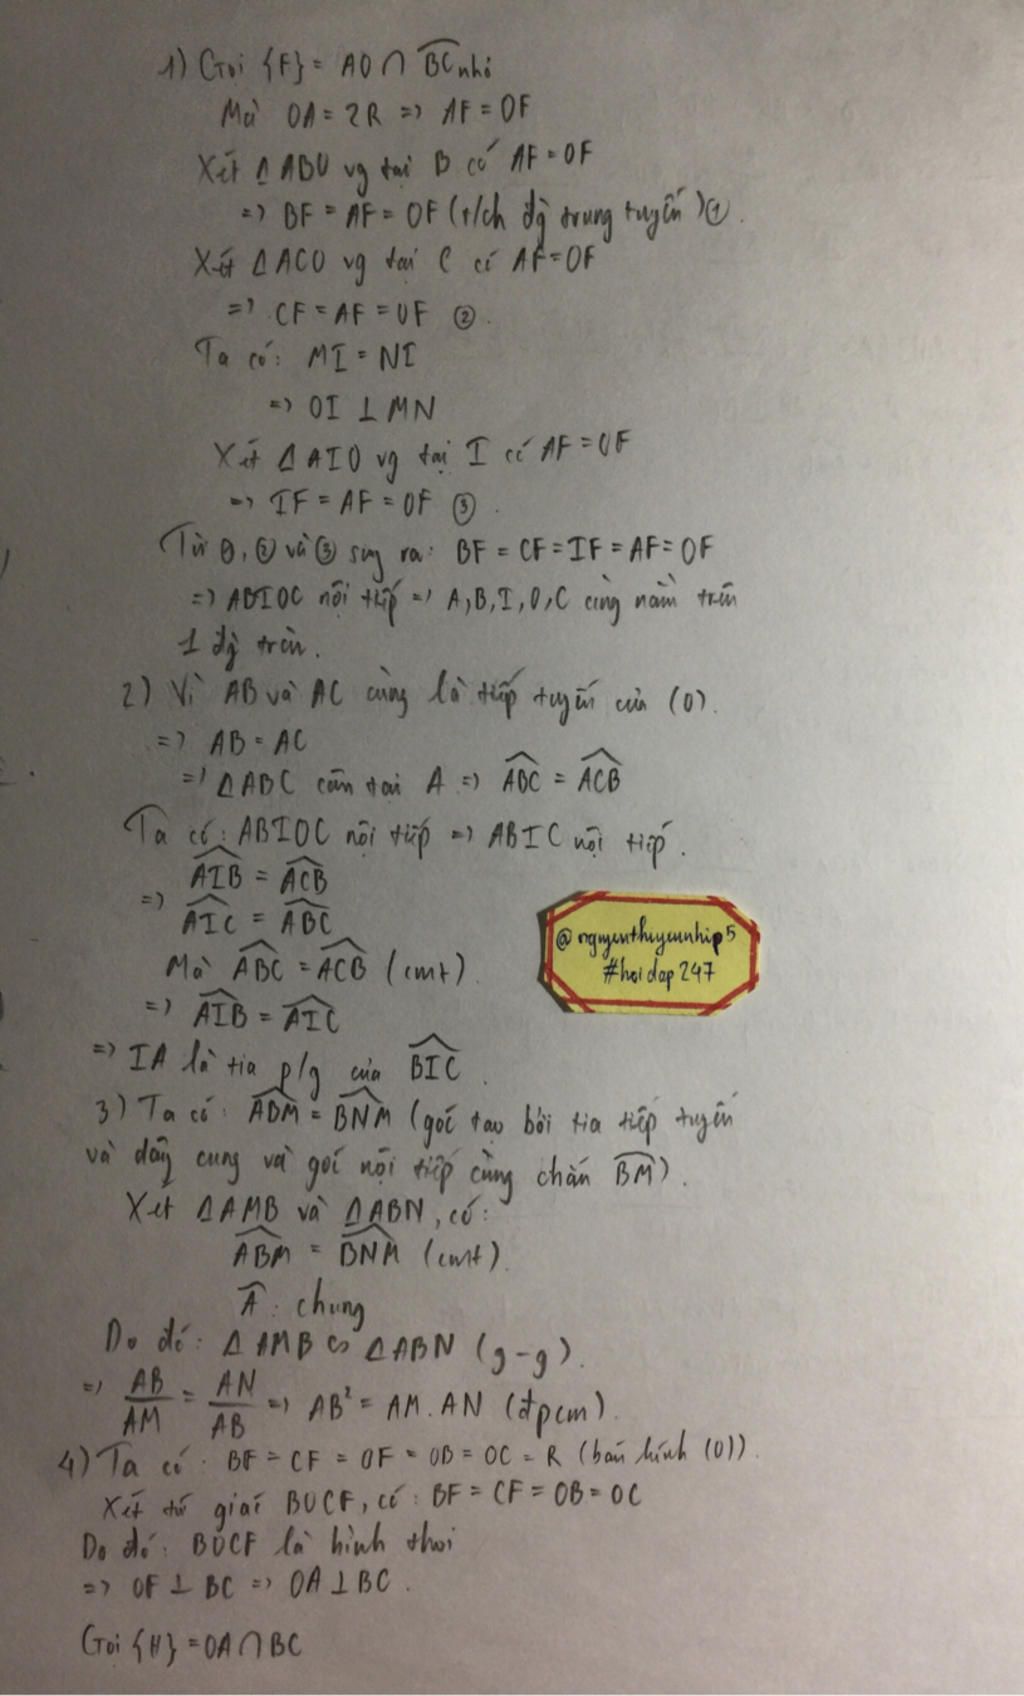 1) Gọi {F} = AO ∩ BC nhỏ
Mà OA = 2R => AF = OF
Xét △ABO vg tại B có AF = OF
=> BF = AF = OF (t/ch đg trung tuyến) ①.
Xét △ACO vg tại C có AF = OF
=> CF = AF = OF ②.
Ta có: MI = NI
=> OI ⊥ MN
Xét △AIO vg tại I có AF = OF
=> IF = AF = OF ③.
Từ ①, ② và ③ suy ra: BF = CF = IF = AF = OF
=> ABIOC nội tiếp => A, B, I, O, C cùng nằm trên
1 đg tròn.
2) Vì AB và AC cùng là tiếp tuyến của (O).
=> AB = AC
=> △ABC cân tại A => ABC = ACB
Ta có: ABIOC nội tiếp => ABIC nội tiếp.
AIB = ACB
=>
AIC = ABC
Mà ABC = ACB (cmt).
=> AIB = AIC
=> IA là tia p/g của BIC.
@nguyenthiyeunhip5
#hoidap247
3) Ta có: ABM = BNM (góc tạo bởi tia tiếp tuyến
và dây cung và góc nội tiếp cùng chắn BM).
Xét △AMB và △ABN, có:
ABM = BNM (cmt).
A: chung
Do đó: △AMB ∽ △ABN (g-g).
=> AB/AM = AN/AB => AB² = AM.AN (đpcm).
4) Ta có: BF = CF = OF = OB = OC = R (bán kính (O)).
Xét tứ giác BOCF, có: BF = CF = OB = OC
Do đó: BOCF là hình thoi
=> OF ⊥ BC => OA ⊥ BC.
Gọi {H} = OA ∩ BC